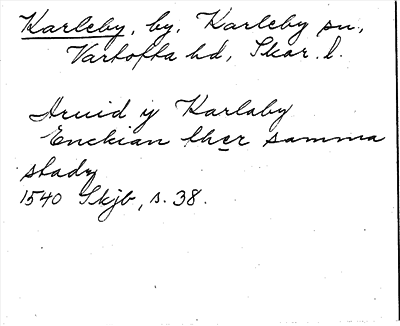 Karleby, by, Karleby sn,
Vartofta hd, Skar. l.
Aruid y Karlaby
Enckian ther samma
stady
1540 Skjb, s. 38.